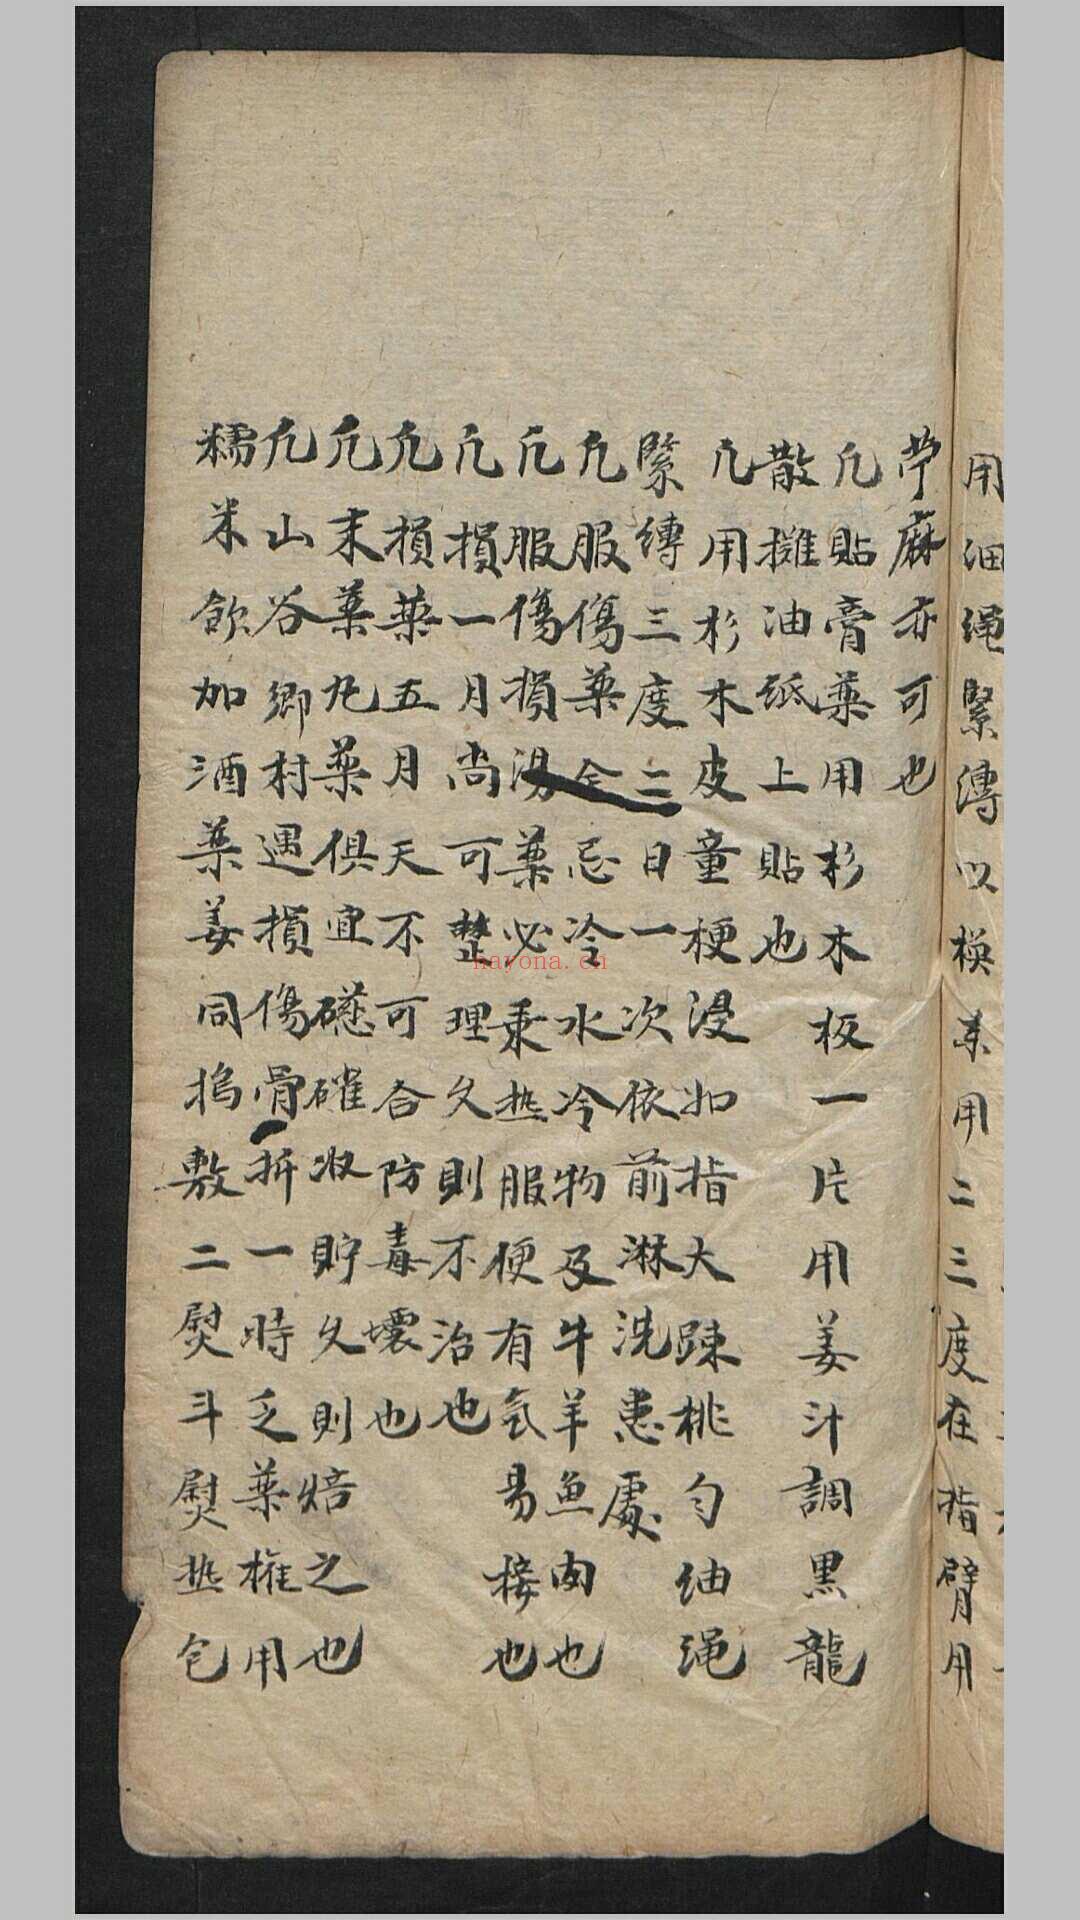 用細绳緊溥以換葯用二三度在指臂用
苧麻亦可也
凢貼膏藥用杉木板一片用姜汁調黒龍
散攤油紙上貼也
凢用杉木皮童梗浸如指大踈桃勻紬绳
緊縳三度二日一次依前淋洗患處
凢服傷藥全忌冷水冷物及牛羊魚肉也
凢服傷損湯藥必乘热服便有氣易接也
凢損一月尚可整理久則不治也
凢損藥五月天不可合防毒壞也
凢末藥丸藥俱宜礠罐收貯久則焙之也
凢山谷鄉村遇損傷骨折一時乏藥權用
糯米飲加酒藥姜同搗敷二熨斗熨热包
hayona.cn